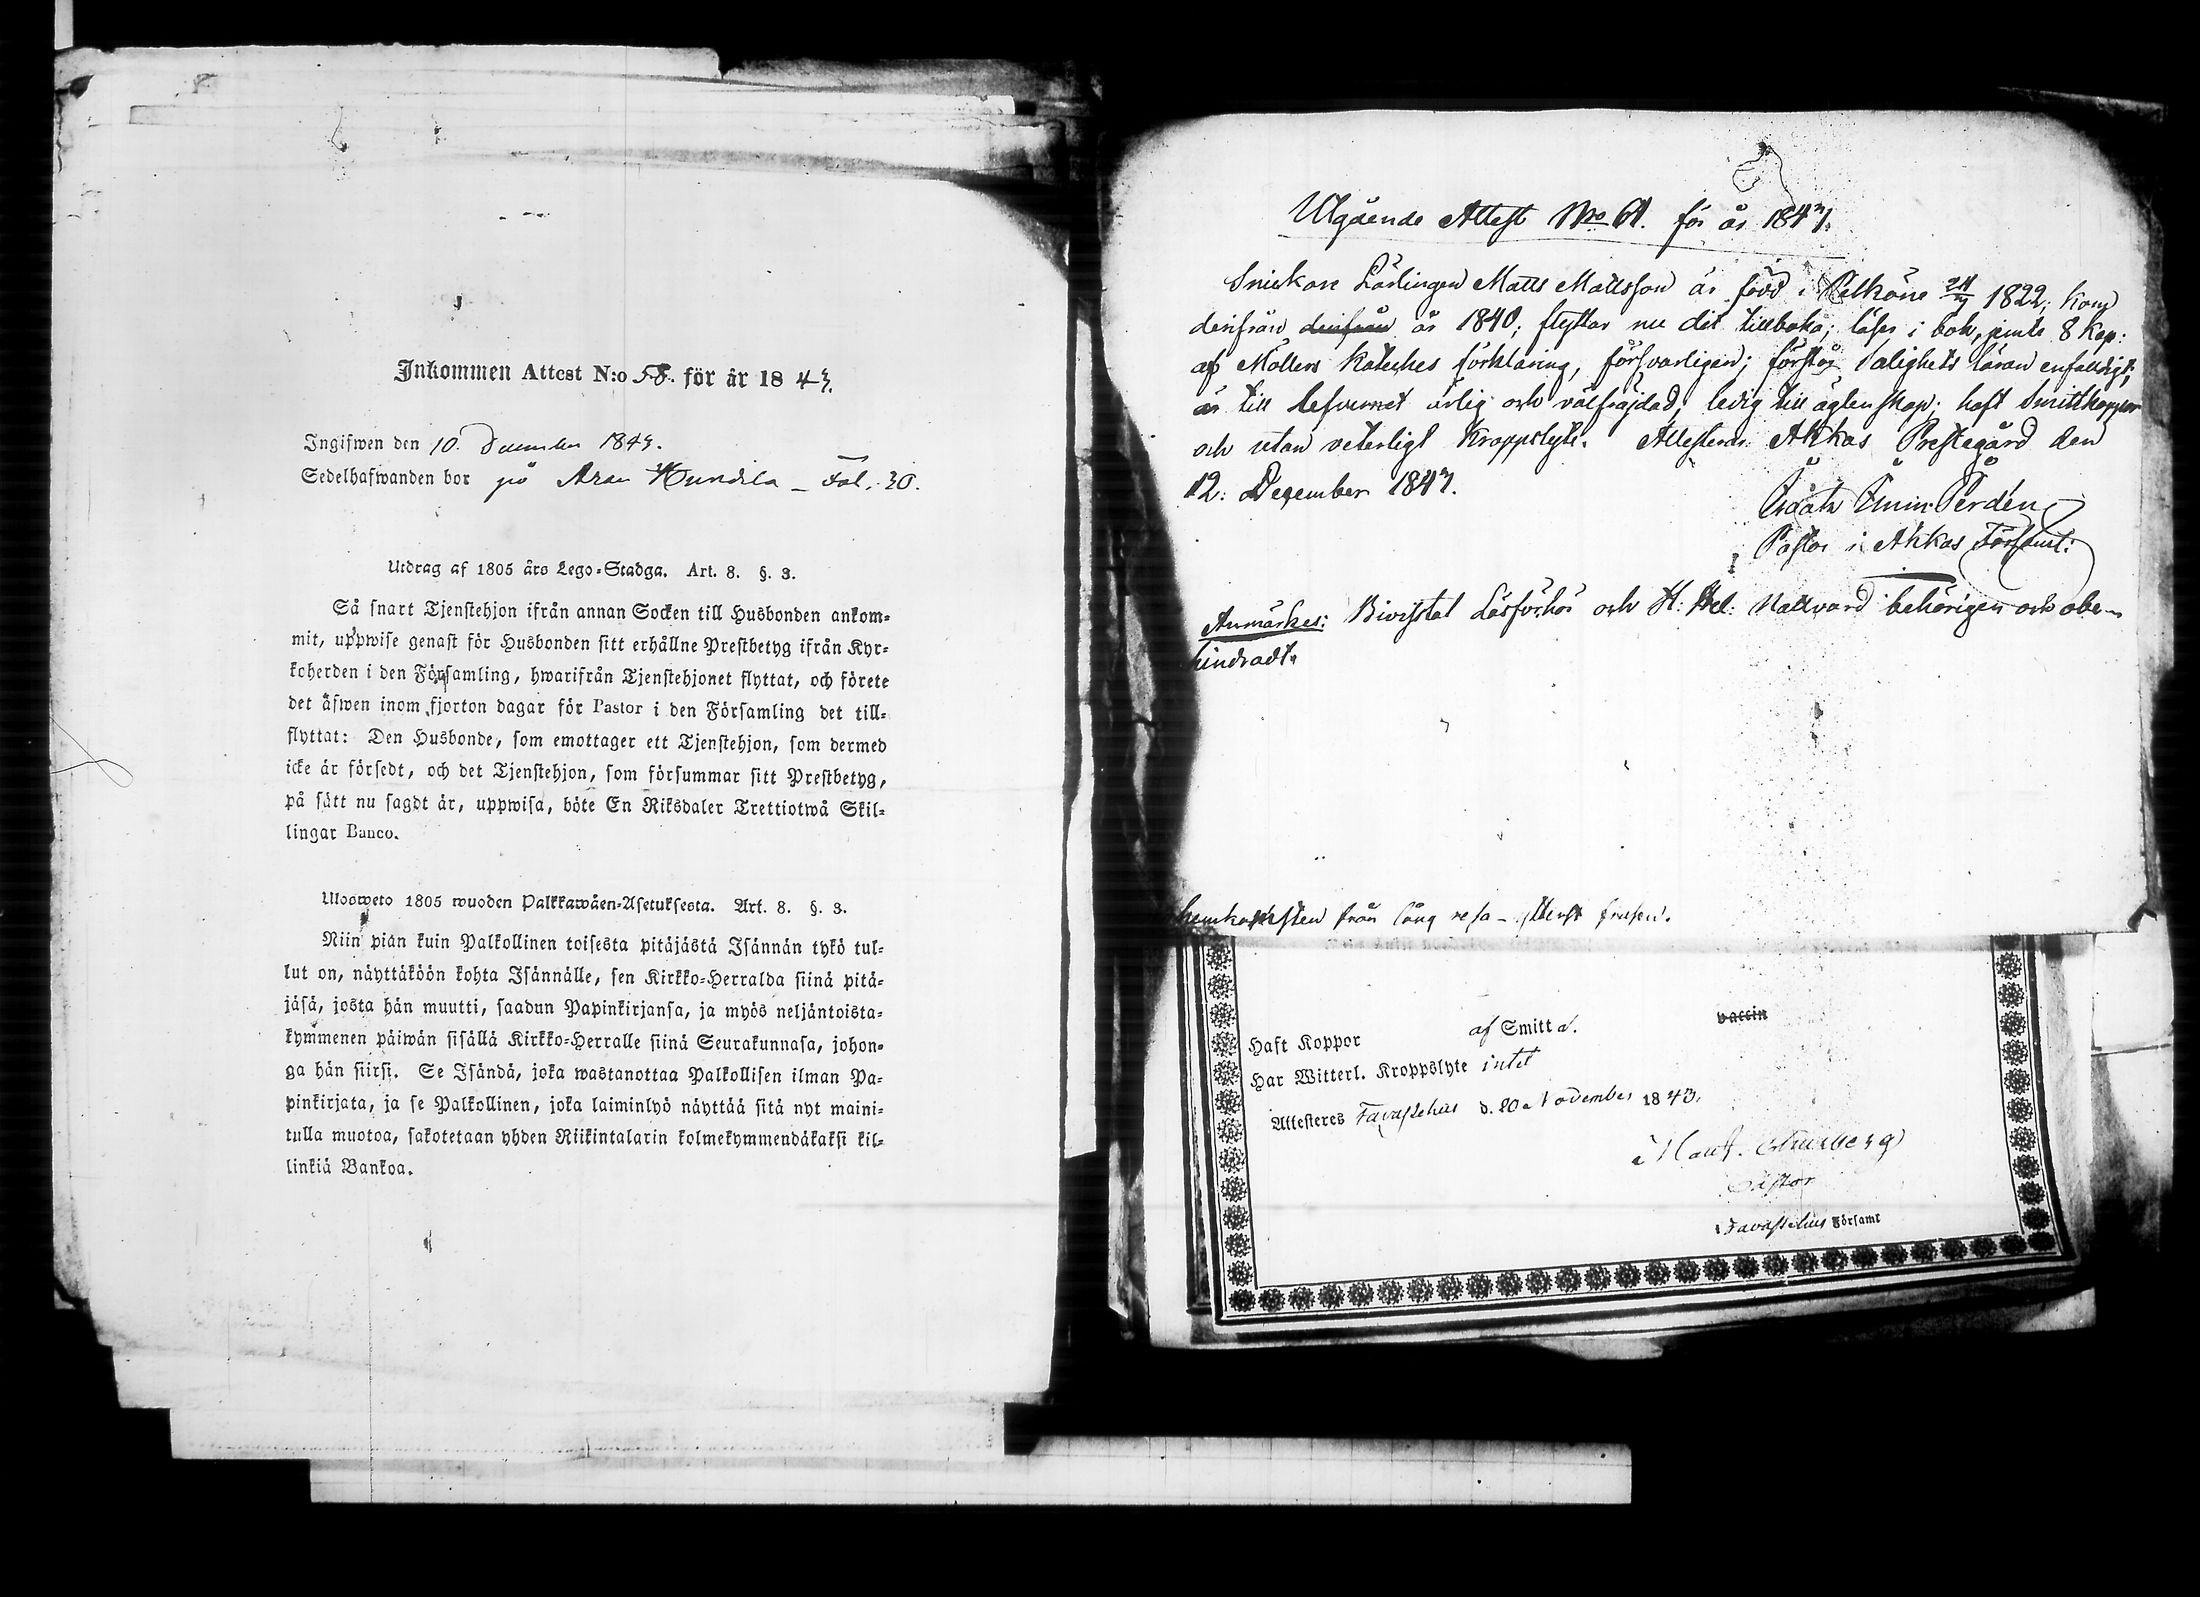 Inkommen Attest N:o 58. för år 1843.
Ingifwen den 10. December 1843.
Sedelhafwanden bor på Fol. 30.
Utdrag af 1805 års Lego=Stadga. Art. 8. §. 3.
Så snart Tjenstehjon ifrån annan Socken till Husbonden ankom=
mit, uppwise genast för Husbonden sitt erhållne Prestbetyg ifrån Kyr=
koherden i den Församling, hwarifrån Tjenstehjonet flyttat, och förete
det äfwen inom fjorton dagar för Pastor i den Församling det till=
flyttat: Den Husbonde, som emottager ett Tjenstehjon, som dermed
icke är försedt, och det Tjenstehjon, som försummar sitt Prestbetyg,
på sätt nu sagdt är, uppwisa, böte En Riksdaler Trettiotwå Skil=
lingar Banco.
Uloosweto 1805 wuoden Palkkawäen=Asetuksesta. Art. 8. §. 3.
Niin pian kuin Palkollinen toisesta pitäjästä Isännän tykö tul=
lut on, näyttäköön kohta Isännälle, sen Kirkko=Herralda siinä pitä=
jäsä, josta hän muutti, saadun Papinkirjansa, ja myös neljäntoista=
kymmenen päiwän sisällä Kirkko=Herralle siinä Seurakunnasa, johon=
ga hän siirsi. Se Isändä, joka wastanottaa Palkollisen ilman Pa=
pinkirjata, ja se Palkollinen, joka laiminlyö näyttää sitä nyt maini=
tulla muotoa, sakotetaan yhden Riikintalarin kolmekymmendäkaksi kil=
linkiä Bankoa.
Utgående Attest No 61. för år 1843.
Snickare Lärlingen Matts Mattsson är född i Pelkäne 1822; kom
derifrån derifrån år 1840; flyttar nu dit tillbaka; läser i bok, jemte 8 Kap:
af Möllers Kateches förklaring, försvarligen; förstår Salighets läran enfaldigt;
är till lefvernet ärlig och välfräjdad; ledig till äglenskap; haft Smittkoppor
och utan veterligt Kroppslyte. Attesterar Akkas Prestegård den
12: December 1843.
Pastor i Akkas Församl:
Anmärkes: Bivistat Läsförhör och H: Hel: Nattvard behörigen och obe-
hindradt.
från lång resa -
Haft Koppor af Smitta. vaccin
Har Witterl. Kroppslyte intet
Attesteres Tavastehus d. 20 November 1843.
Pastor
Tavastehus Församl